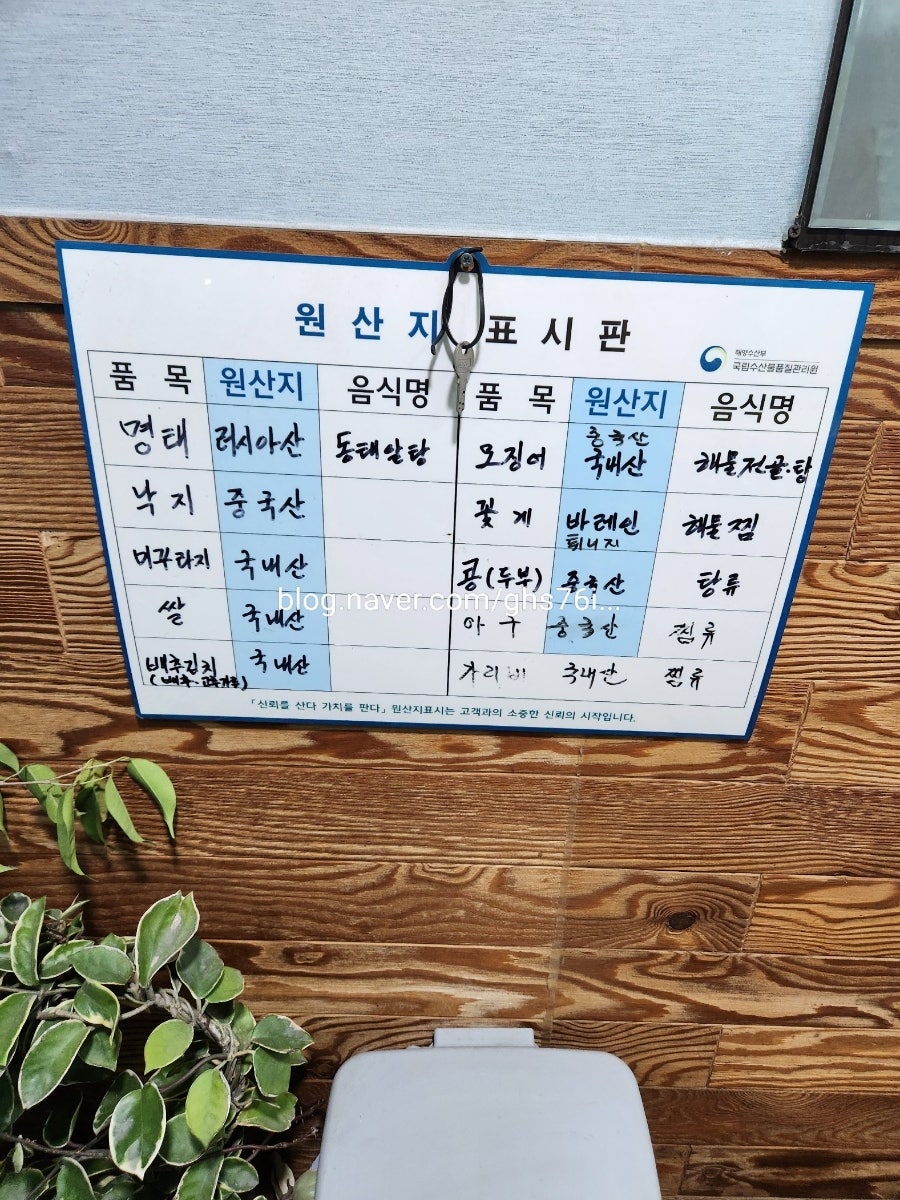 원산지 표시판
해양수산부
국립수산물품질관리원
품목 원산지 음식명 품목 원산지 음식명
명태 러시아산 동태알탕
오징어 중국산 국내산 해물전골.탕
낙지 중국산
꽃게 바레인 튀니지 해물찜
미꾸라지 국내산
콩(두부) 중국산 탕류
쌀 국내산
아구 중국산 찜류
배추김치 국내산
(배추.고추가루)
가리비 국내산 찜류
「신뢰를 산다 가치를 판다」 원산지표시는 고객과의 소중한 신뢰의 시작입니다.
blog.naver.com/ghs76i...